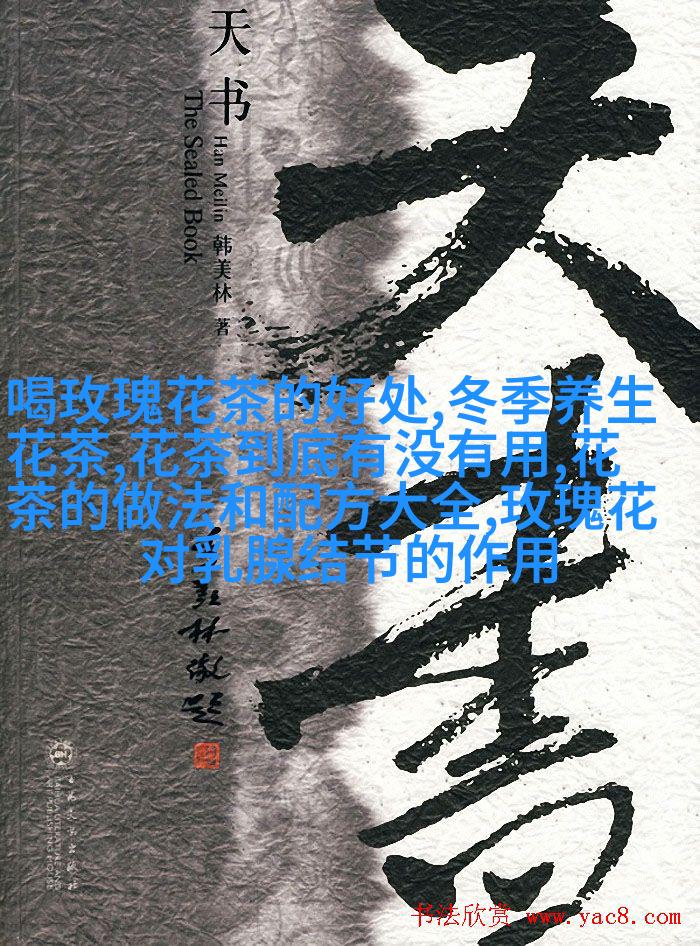 天书
The Sealed Book
Han Meilin 韩美林 著
天书
喝玫瑰花茶的好处,冬季养生
花茶,花茶到底有没有用,花
茶的做法和配方大全,玫瑰花
对乳腺结节的作用
林敬题
书法欣赏 www.yac8.com